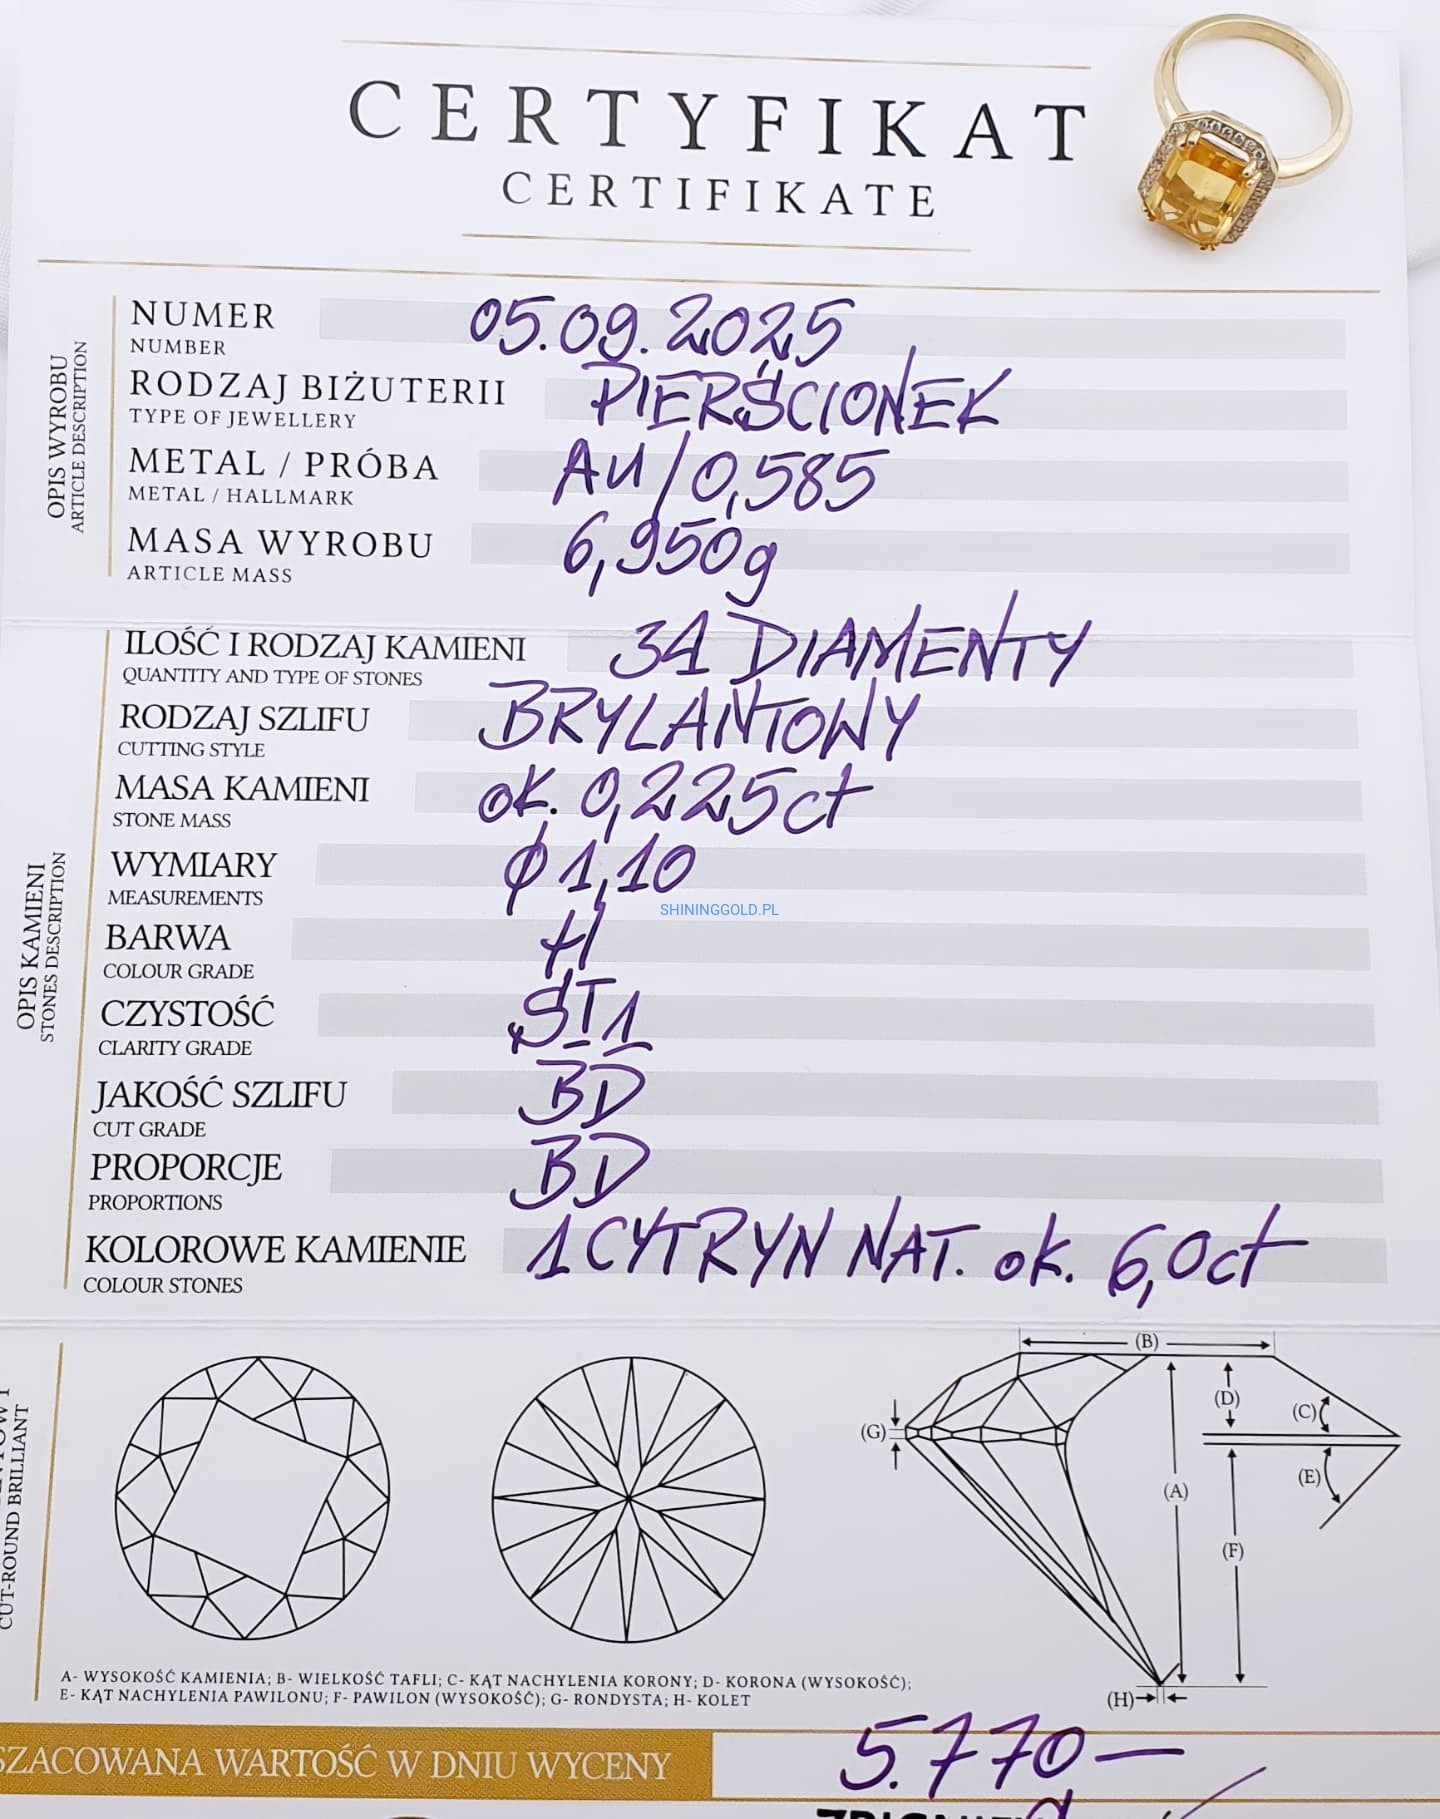 CERTYFIKAT
CERTIFIKATE
OPIS WYROBU
ARTICLE DESCRIPTION
NUMER 05.09.2025
NUMBER
RODZAJ BIŻUTERII PIERŚCIONEK
TYPE OF JEWELLERY
METAL / PRÓBA AU/0,585
METAL / HALLMARK
MASA WYROBU 6,950g
ARTICLE MASS
OPIS KAMIENI
STONES DESCRIPTION
ILOŚĆ I RODZAJ KAMIENI 34 DIAMENTY
QUANTITY AND TYPE OF STONES
RODZAJ SZLIFU BRYLANTOWY
CUTTING STYLE
MASA KAMIENI ok. 0,225ct
STONE MASS
WYMIARY ϕ 1,10
MEASUREMENTS
SHININGGOLD.PL
BARWA H
COLOUR GRADE
CZYSTOŚĆ SI1
CLARITY GRADE
JAKOŚĆ SZLIFU BD
CUT GRADE
PROPORCJE BD
PROPORTIONS
KOLOROWE KAMIENIE 1 CYTRYN NAT. ok. 6,0ct
COLOUR STONES
CUT-ROUND BRILLIANT
(B)
(D)
(C)
(G)
(E)
(A)
(F)
(H)
A- WYSOKOŚĆ KAMIENIA; B- WIELKOŚĆ TAFLI; C- KĄT NACHYLENIA KORONY; D- KORONA (WYSOKOŚĆ);
E- KĄT NACHYLENIA PAWILONU; F- PAWILON (WYSOKOŚĆ); G- RONDYSTA; H- KOLET
SZACOWANA WARTOŚĆ W DNIU WYCENY 5.770—